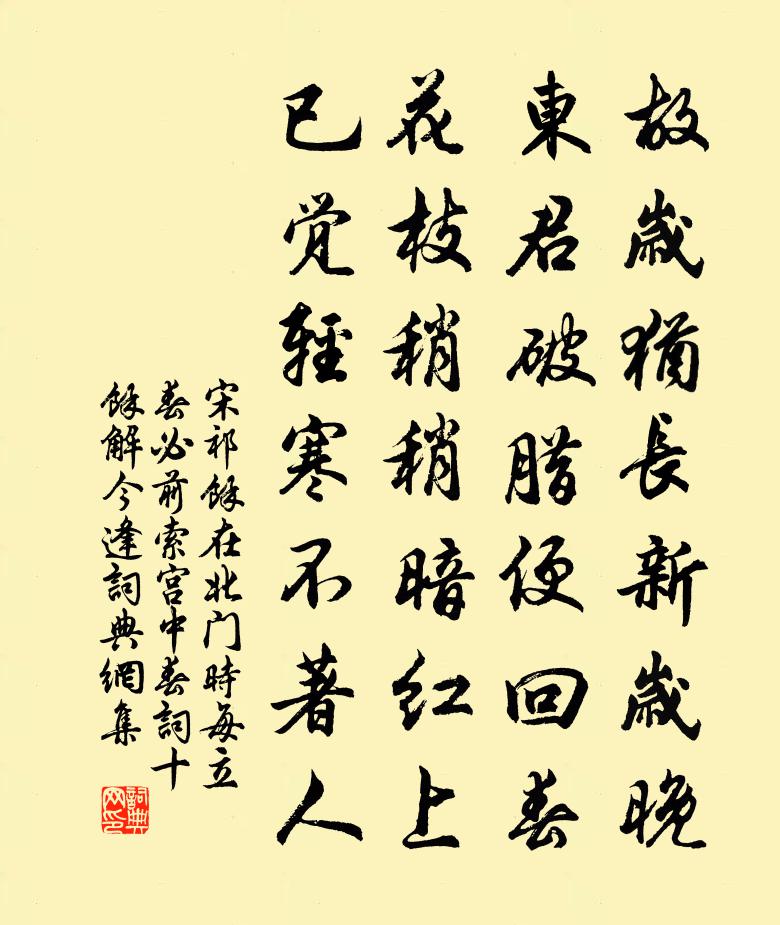 故歲猶長新歲晚
東君破腊便回春
花枝稍稍暗红上
已覚輕寒不著人
宋祁餘在北门時每立
春必前索宫中春詞十
餘解今逢詞典網集
詞典网印